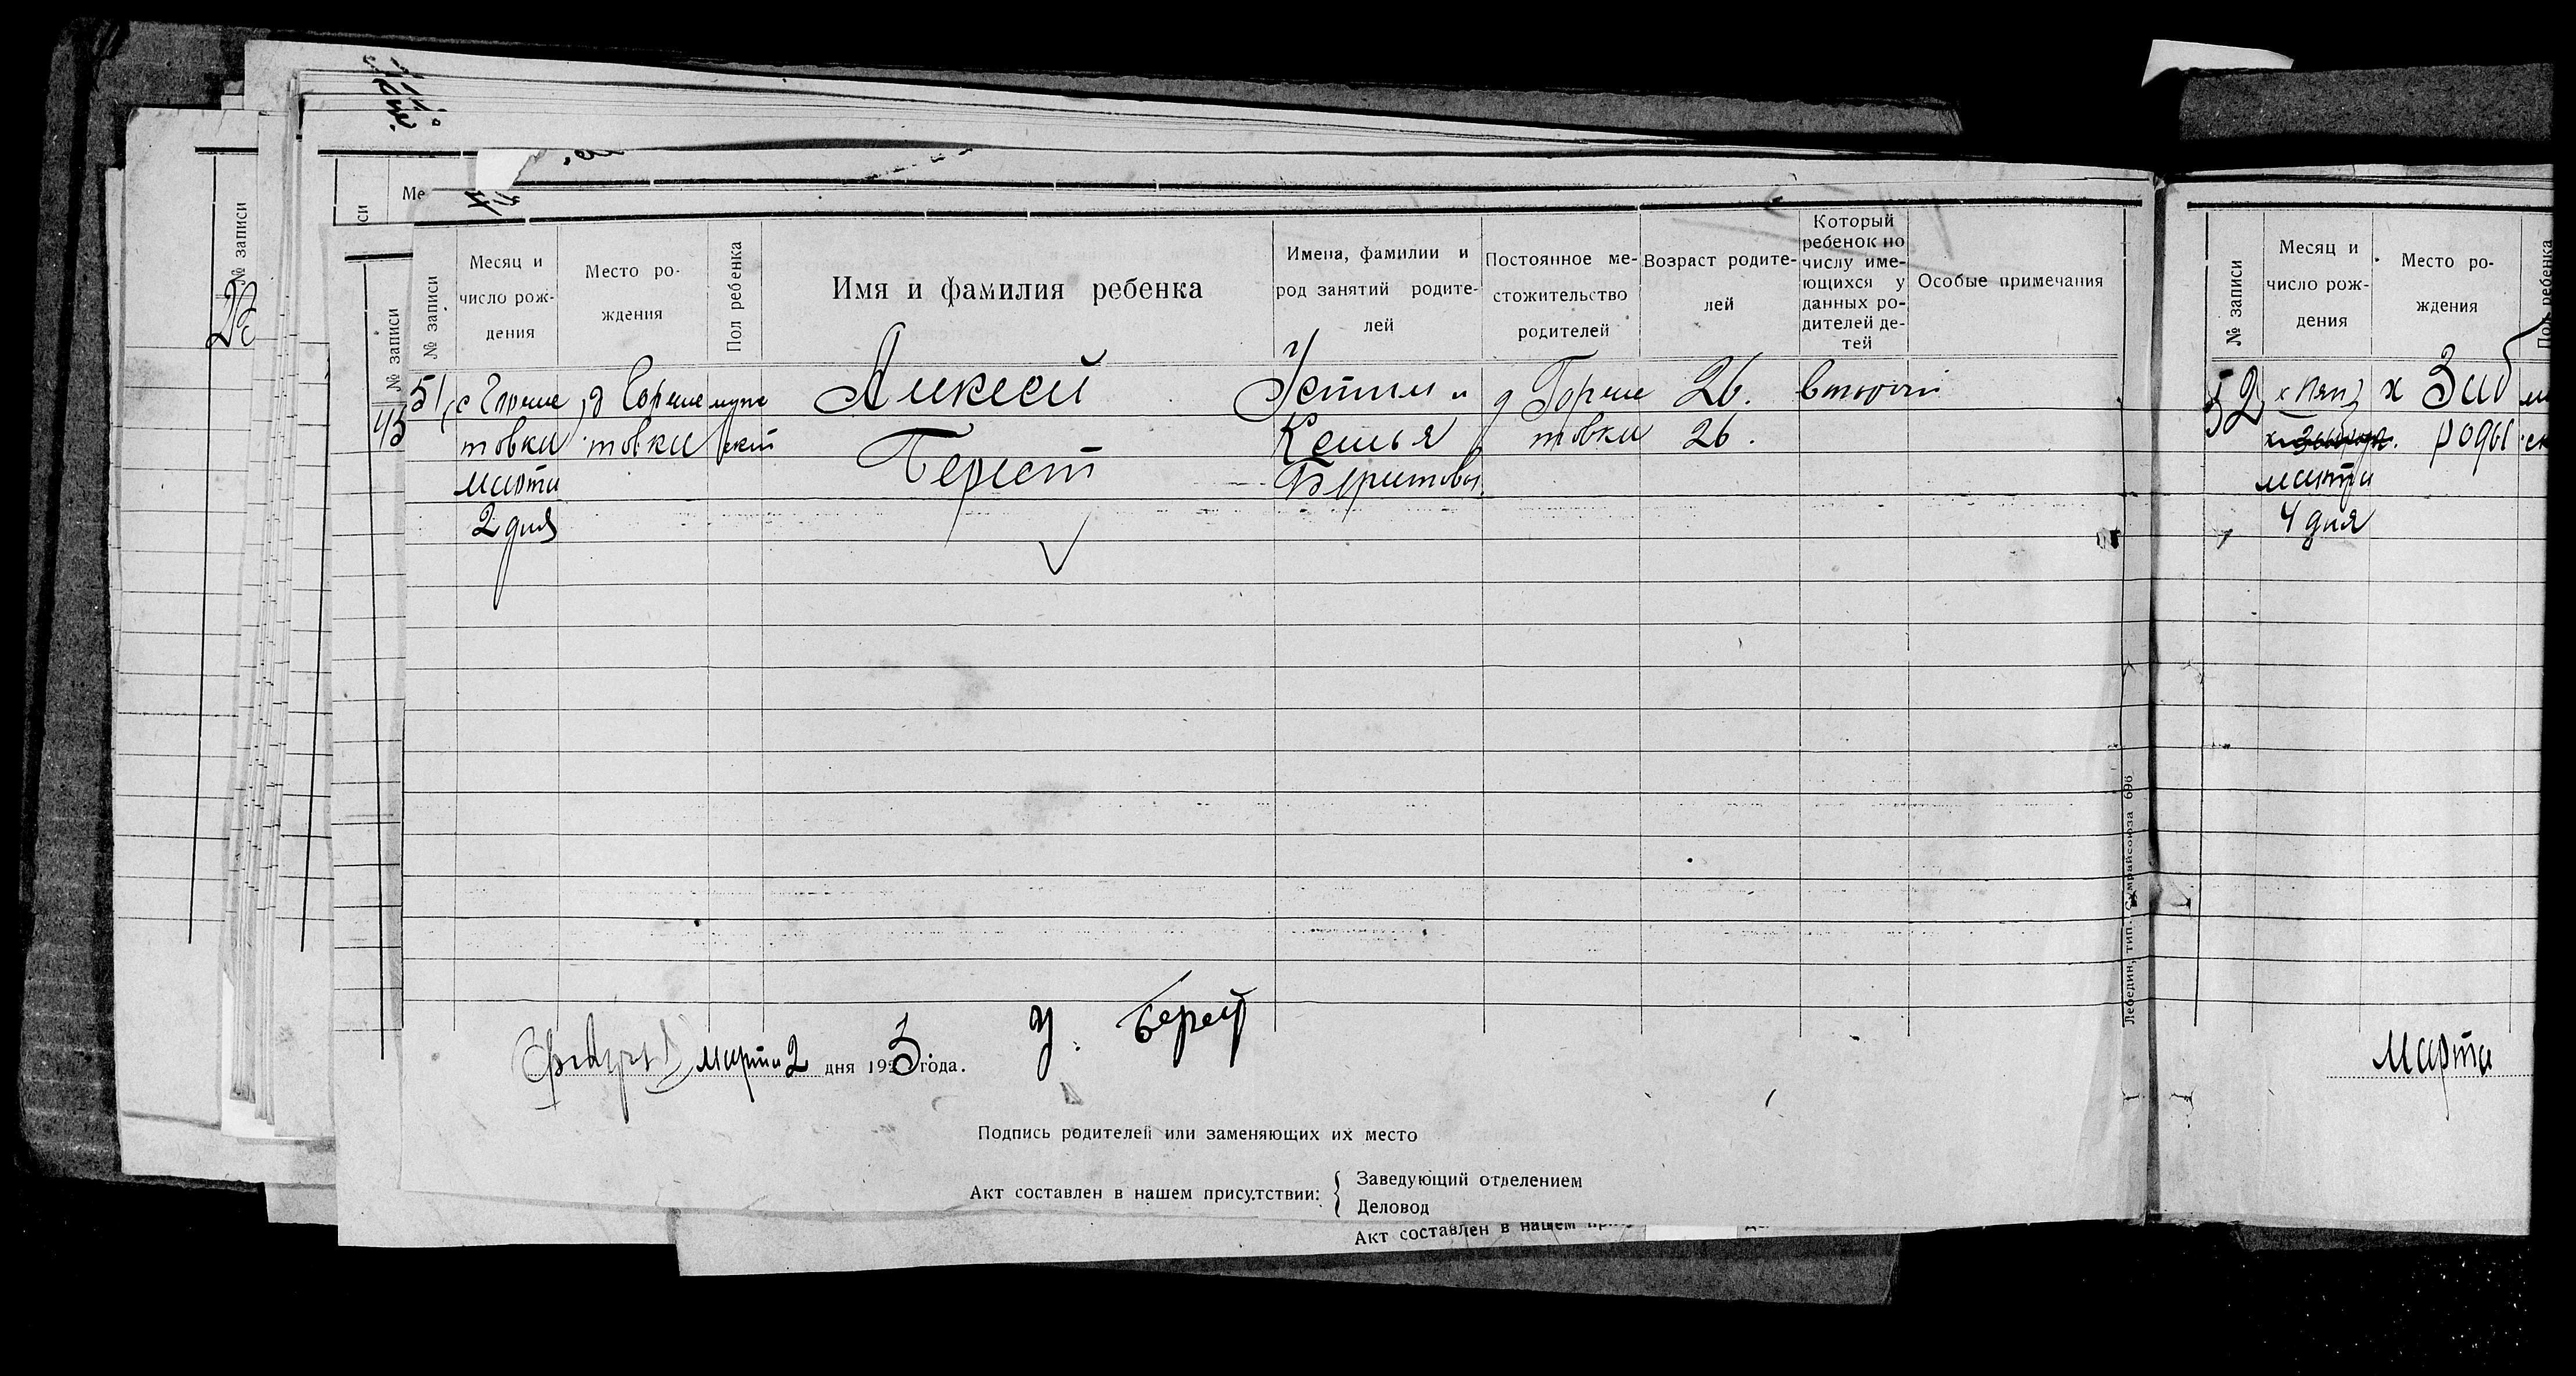 № записи
№ записи
№ записи
43
№ записи
Месяц и
число рож-
дения
Место ро-
ждения
Пол ребенка
Имя и фамилия ребенка
Имена, фамилии и
род занятий родите-
лей
Постоянное ме-
стожительство
родителей
Возраст родите-
лей
Который
ребенок по
числу име-
ющихся у
данных ро-
дителей де-
тей
Особые примечания
51
товки
марта
2 дня
товки
Алексей
Берест
Устим и
Берестовы
д Горше
товки
26.
26.
второй
марта 2 дня 1923 года.
У. Берест
Подпись родителей или заменяющих их место
Акт составлен в нашем присутствии:
Заведующий отделением
Деловод
Акт составлен в нашем
Лебедин, тип. Сумрайсоюза 696
№ записи
Месяц и
число рож-
дения
Место ро-
ждения
Пол ребенка
52
марта
4 дня
х Заб
роды
марта